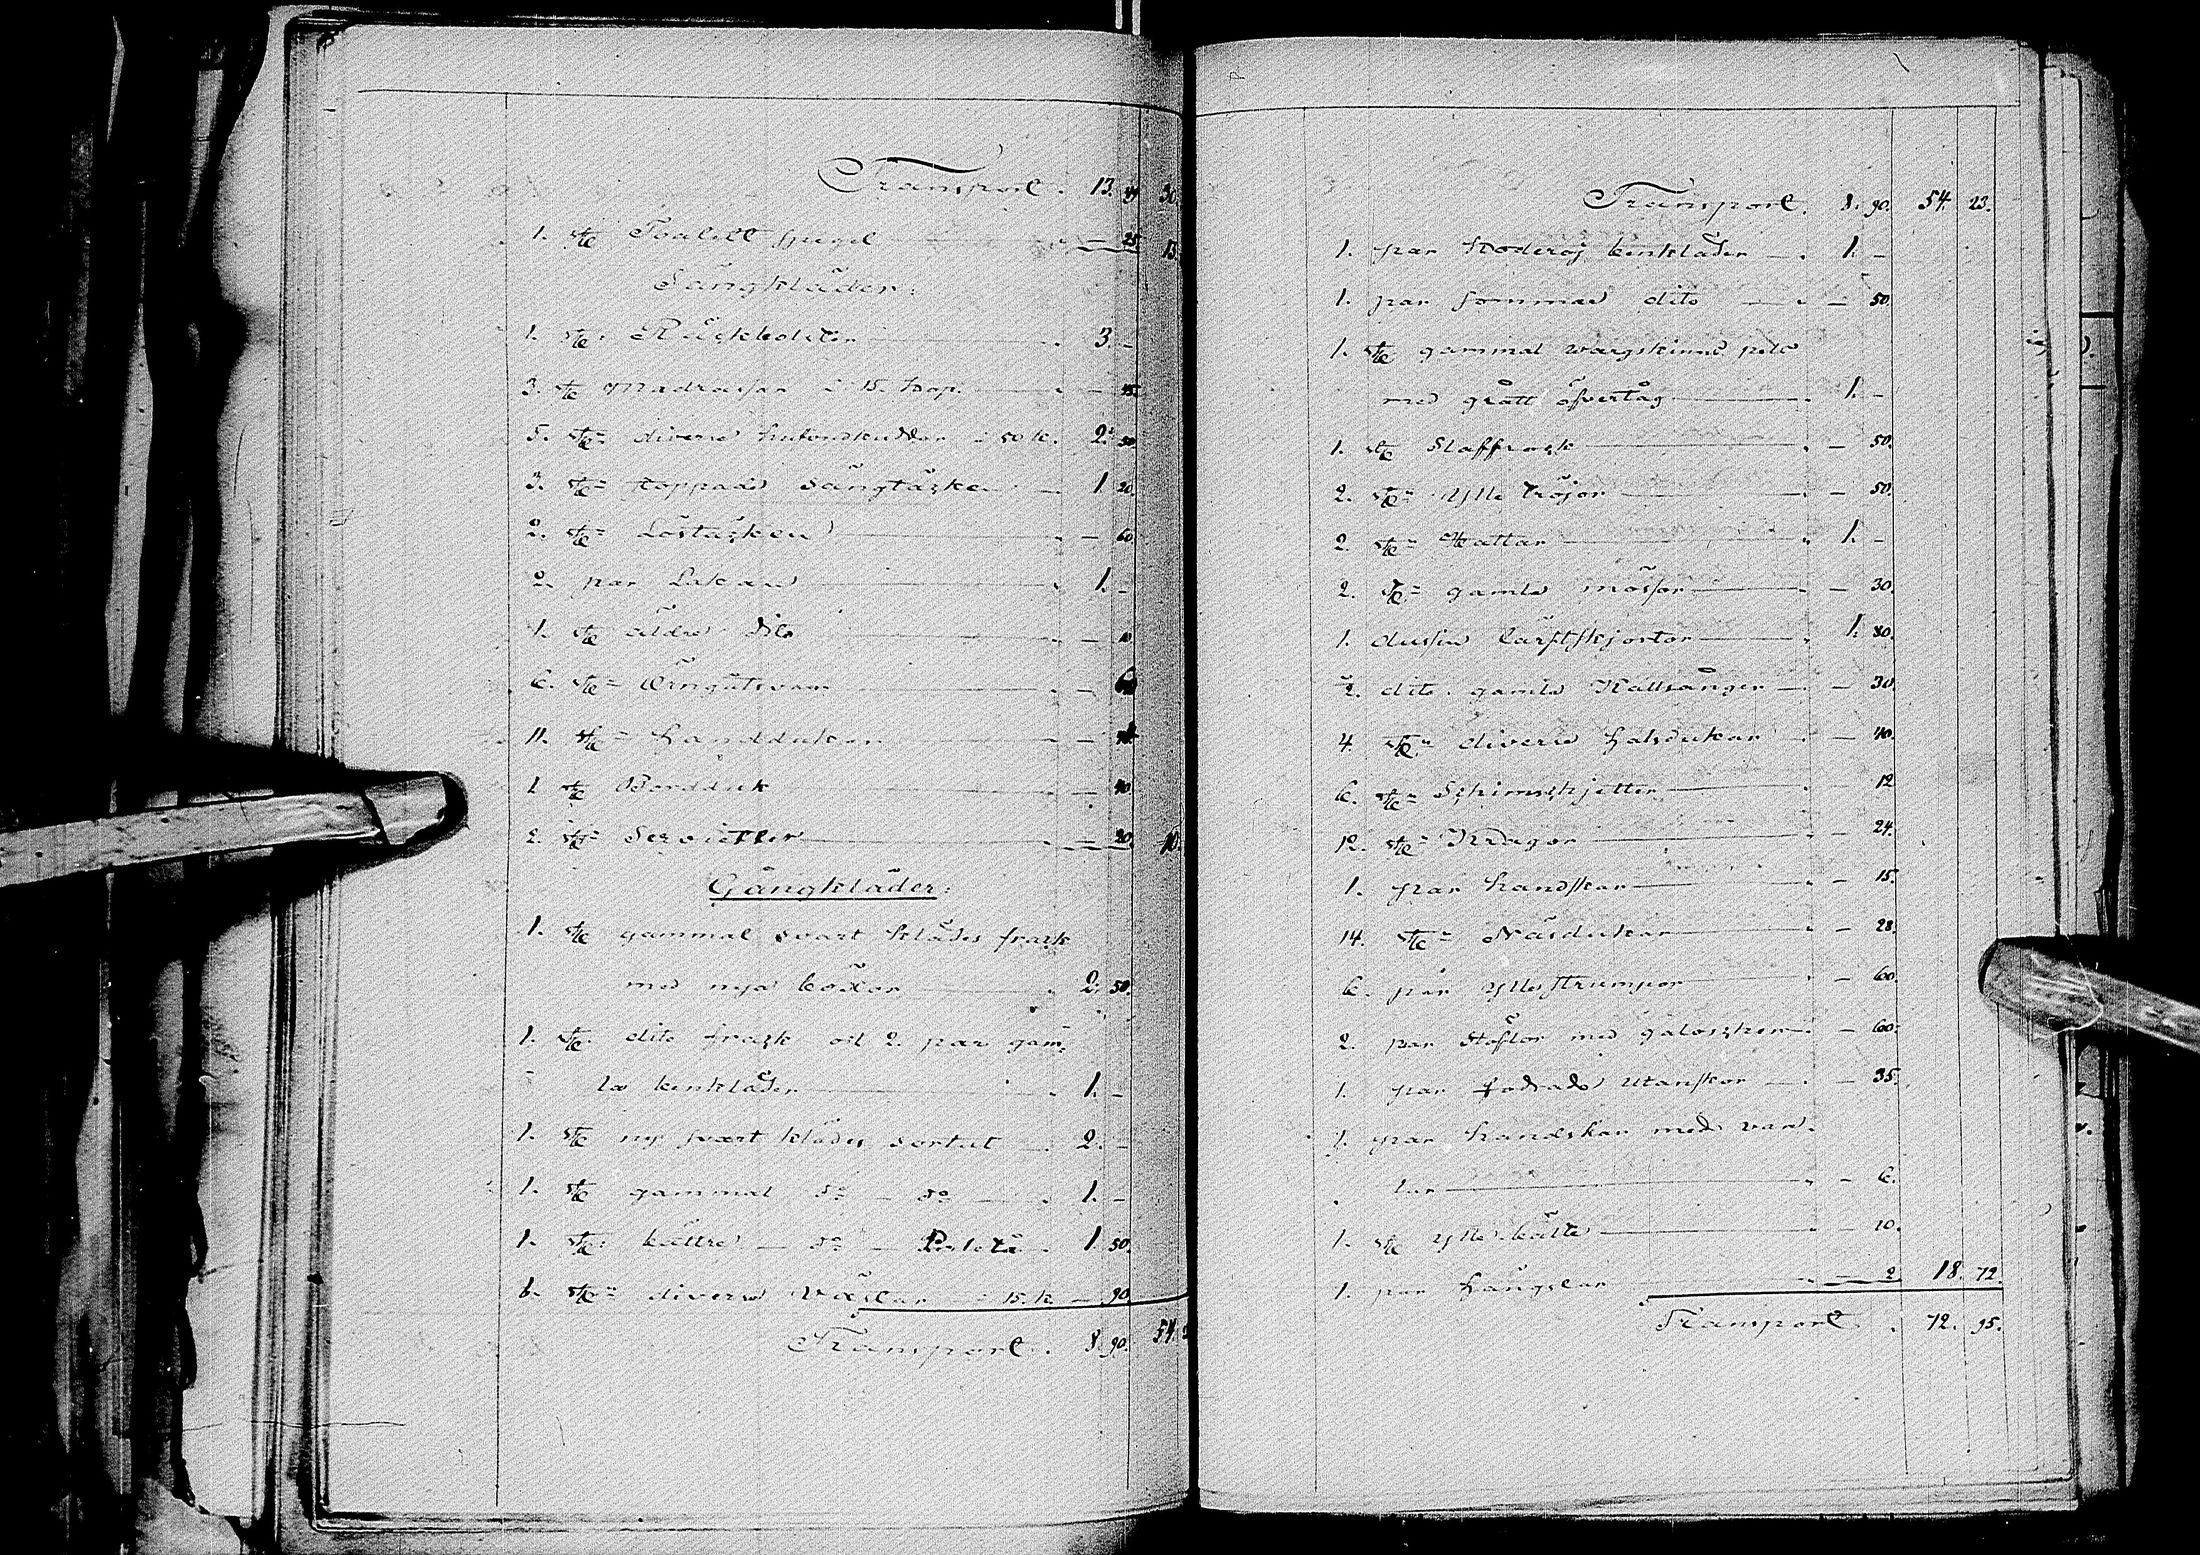 Transport. 13. 30.
1. st. Toalett spegel — 25. 13.
Sängkläder:
1. st. Räckbolster 3. —
3. st. Madrasser à 15. kop. — 45.
5. st:r diverse hufvudkuddar à 50 k. 2. 50.
3. st:r stoppade Sängtäcken 1. 20.
2. st:r Löstäcken — 60.
2. par Lakan 1. —
1. st. äldre dito — 10.
6. st:r Örngåtsvarn — 60
11. st:r Handdukar —
1 st. Bordduk — 40.
2. st:r Servietter — 20. 10.
Gångkläder:
1. st. gammal svart klädes frack
med nya böxor 2. 50.
1. st. dito frack och 2. par gam-
la benkläder 1. —
1. st. ny svart klädes sortut 2. —
1. st. gammal d:o — d:o 1. —
1. st. bättre — d:o — Paletå 1. 50.
6. st:r diverse Västar à 15. k. — 90
Transport. 8. 90. 54.
Transport. 8. 90. 54. 23.
1. par benkläder 1. —
1. par sommar dito — 50.
1. st. gammal vargskinns pels
med grått öfvertåg 1. —
1. st. Slaffrock — 50.
2. st:r Ylle tröjor — 50.
2. st:r Hattar 1. —
2. st:r gamla mössor — 30.
1. dussin lärftskjortor 1. 80.
½. dito. gamla Kallsånger — 30
4 st:r diverse halsdukar — 40.
6. st:r Schimschjetter — 12
12. st:r Kragar — 24.
1. par handskar — 15.
14. st:r Näsdukar — 28.
6. par Yllestrumpor — 60.
2. par stöflor med galoschor — 60.
1. par fodrade utanskor — 35.
1. par handskar med van-
tar — 6.
1. st. Ylle bälte — 10.
1. par hängslar — 2 18. 72.
Transport. 72. 95.